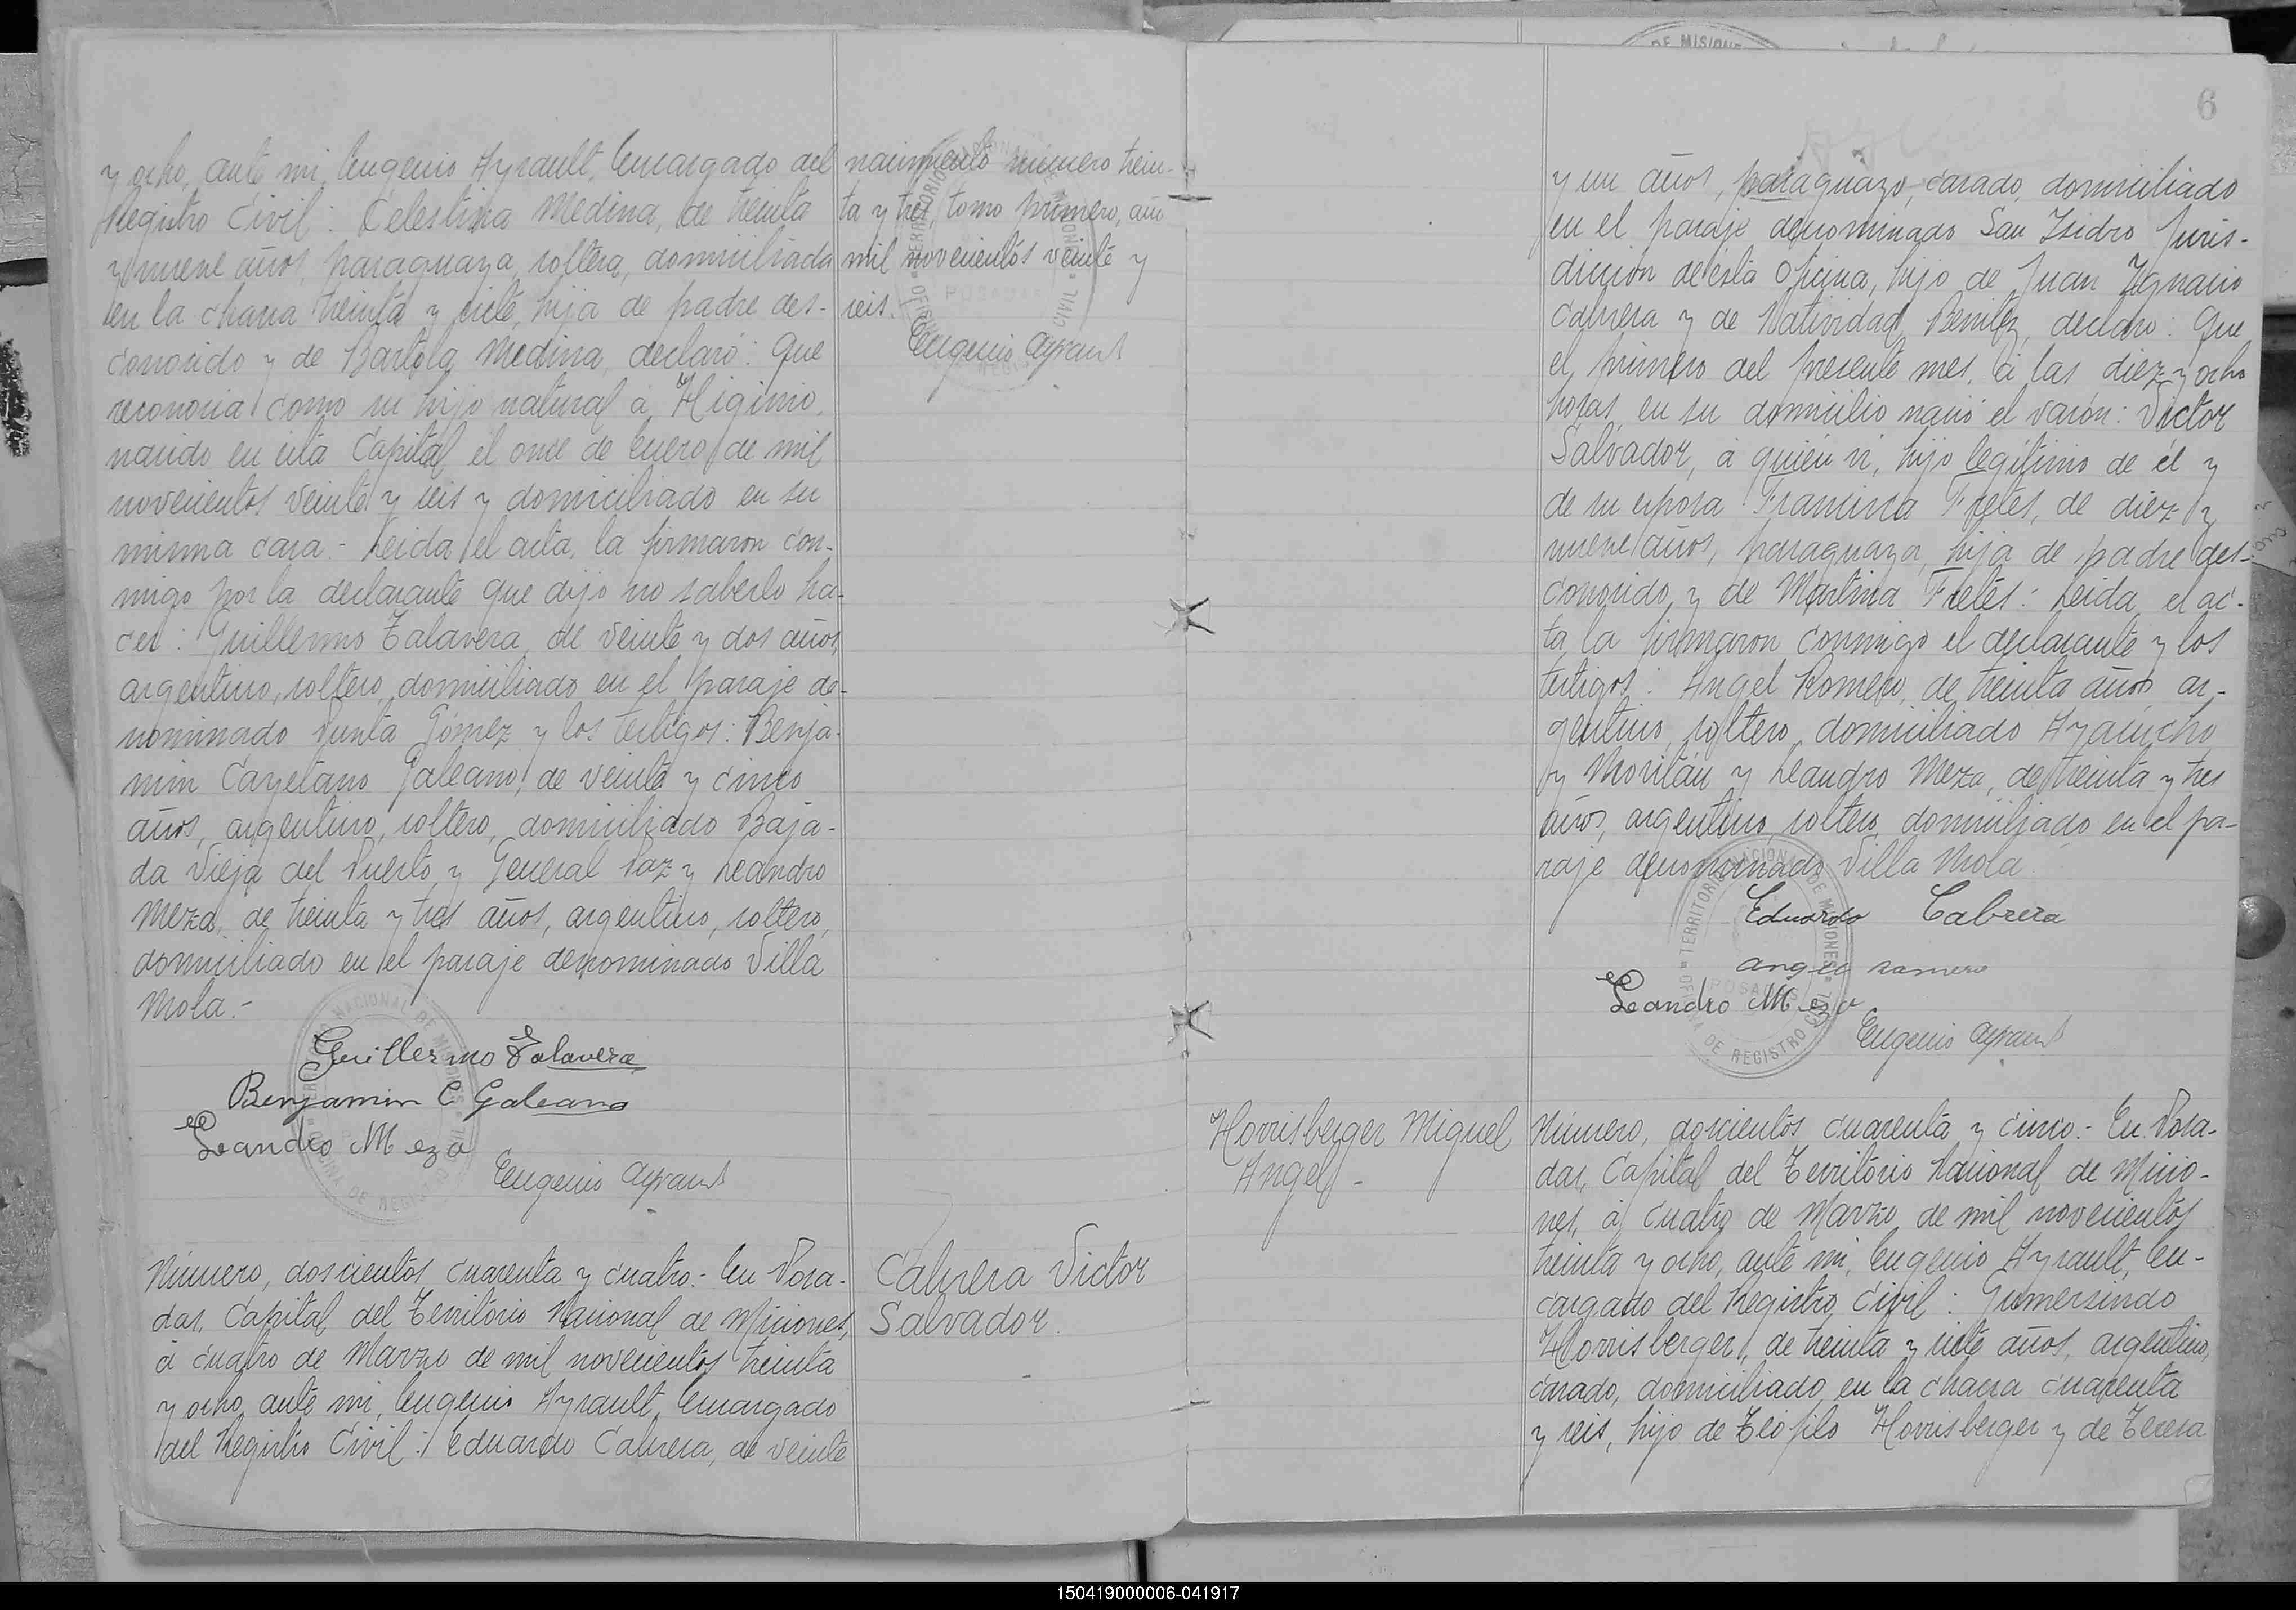 y ocho, ante mi, Eugenio Ayrault, Encargado del
Registro Civil: Celestina Medina, de treinta
y nueve años, paraguaya, soltera, domiciliada
en la chacra treinta y siete, hija de padre des-
conocido y de Bartola Medina, declaró: Que
reconocia como su hijo natural á Higinio,
nacido en esta Capital el once de Enero de mil
novecientos veinte y seis y domiciliado en su
misma casa.- Leida el acta, la firmaron con-
migo por la declarante que dijo no saberlo ha-
cer: Guillermo Talavera, de veinte y dos años,
argentino, soltero, domiciliado en el paraje de-
nominado Punta Gómez y los testigos: Benja-
min Cayetano Galeano, de veinte y cinco
años, argentino, soltero, domiciliado Baja-
da Vieja del Puerto y General Paz y Leandro
Meza, de treinta y tres años, argentino, soltero,
domiciliado en el paraje denominado Villa
Mola.-
Guillermo Talavera
Benjamin C Galeano
Leandro Meza
Eugenio Ayrault
Número, doscientos cuarenta y cuatro.- En Posa-
das, Capital del Territorio Nacional de Misiones,
á cuatro de Marzo de mil novecientos treinta
y ocho, ante mi, Eugenio Ayrault, Encargado
del Registro Civil: Eduardo Cabrera, de veinte
nacimiento número trein-
ta y tres, tomo primero, año
mil novecientos veinte y
seis.
Eugenio Ayrault
Cabrera Victor
Salvador.
6
y un años, paraguayo, casado, domiciliado
en el paraje denominado San Isidro Juris-
diccion de esta Oficina, hijo de Juan Ygnacio
Cabrera y de Natividad Benitez, declaró: Que
el primero del presente mes, á las diez y ocho
horas, en su domicilio nació el varón: Victor
Salvador, á quién vi, hijo legítimo de él y
de su esposa Francisca Fretes, de diez y
nueve años, paraguaya, hija de padre des-
conocido y de Martina Fretes: Leida el ac-
ta la firmaron conmigo el declarante y los
testigos: Angel Romero, de treinta años, ar-
gentino, soltero, domiciliado Ayacucho
y Moritán y Leandro Meza, de treinta y tres
años, argentino, soltero, domiciliado en el pa-
raje denominado Villa Mola
Eduardo Cabrera
Angel Romero
Leandro Meza
Eugenio Ayrault
Horrisberger Miguel
Angel -
Número, doscientos cuarenta y cinco.- En Posa-
das, Capital del Territorio Nacional de Misio-
nes, á cuatro de Marzo de mil novecientos
treinta y ocho, ante mi, Eugenio Ayrault, En-
cargado del Registro Civil: Gumersindo
Horrisberger, de treinta y siete años, argentino,
casado, domiciliado en la chacra cuarenta
y seis, hijo de Teófilo Horrisberger y de Teresa
TERRITORIO NACIONAL DE MISIONES
POSADAS
OFICINA DE REGISTRO CIVIL
DE MISIONES
150419000006-041917